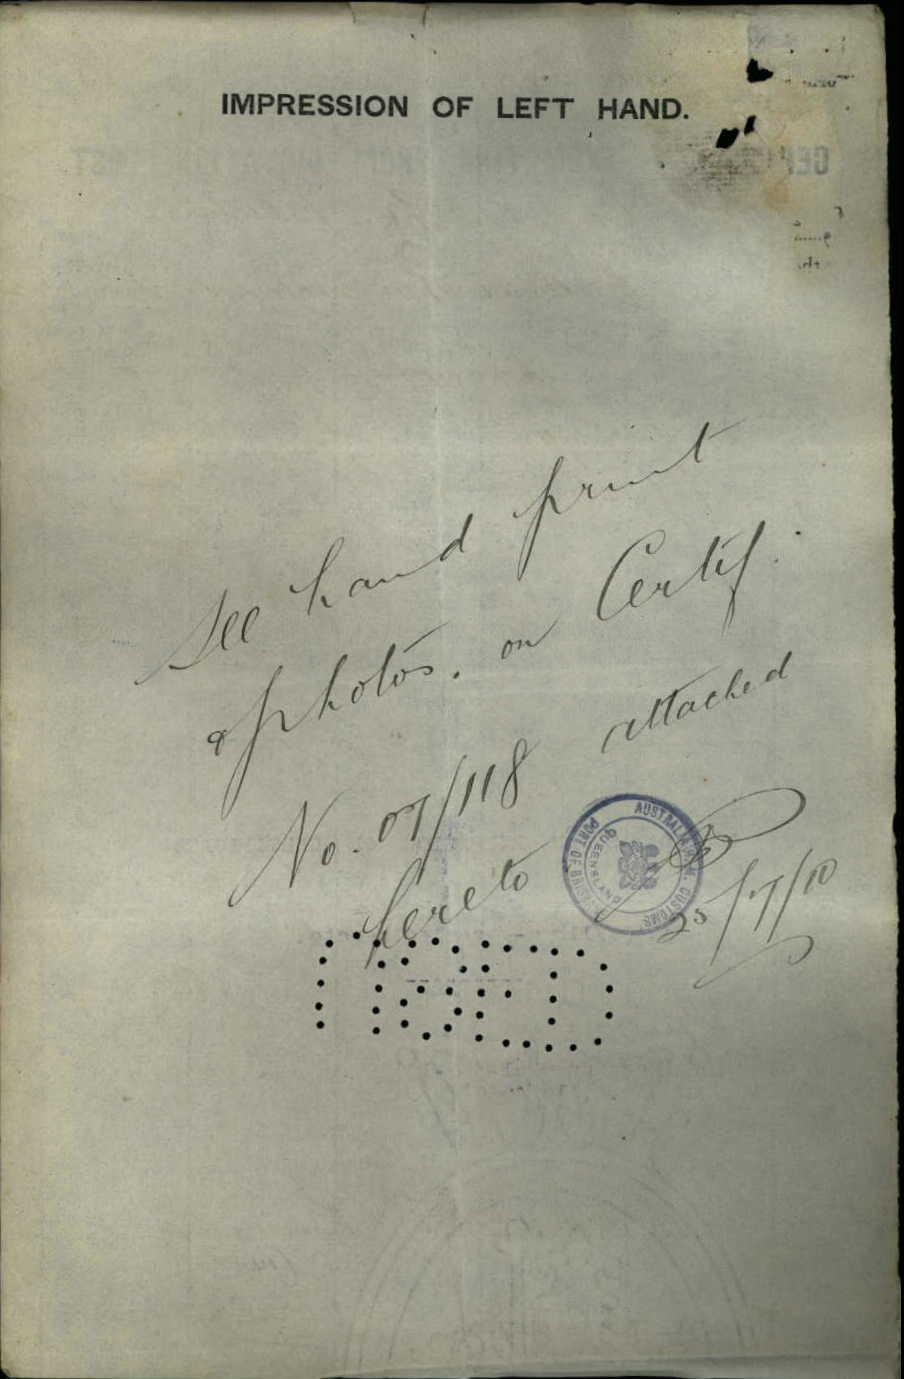 IMPRESSION OF LEFT HAND.
See hand print
& photos. on Certif.
No. 07/118 attached
hereto
25/7/10
AUSTRALIA H.M. CUSTOMS
PORT OF BRISBANE
QUEENSLAND